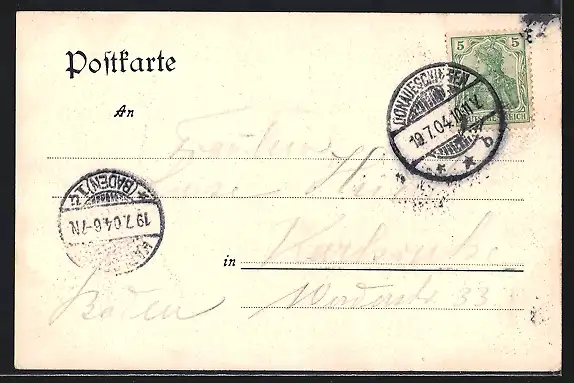 Postkarte
5 5
DEUTSCHES REICH
DONAUESCHINGEN
19.7.04.10-11V.
* * b
An
Fräulein
Luise
(BADEN) 1.
19.7.04.6-7N.
in Karlsruhe
Baden Werderstr. 33